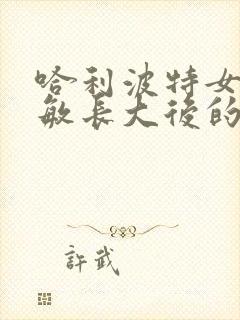 哈利波特女
敏長大後的
許武